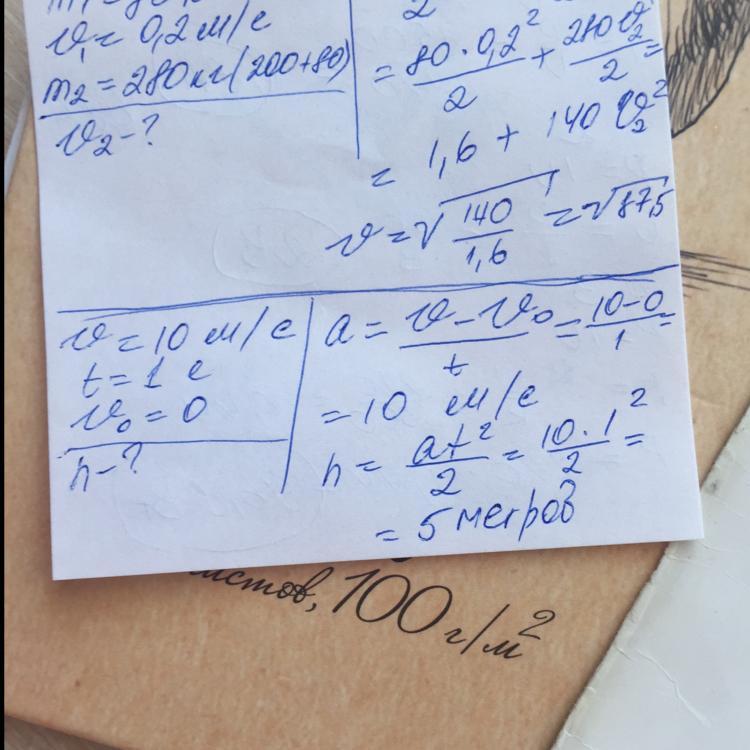 v₁ = 0,2 м/с
m₂ = 280 кг (200+80)
v₂ - ?
2
= 80 · 0,2² / 2 + 280 v₂² / 2 =
= 1,6 + 140 v₂²
v = √(140 / 1,6) = √87,5
v = 10 м/с
t = 1 с
v₀ = 0
h - ?
a = (v - v₀) / t = (10 - 0) / 1 =
= 10 м/с
h = at² / 2 = 10 · 1² / 2 =
= 5 метров
листов, 100 г/м²